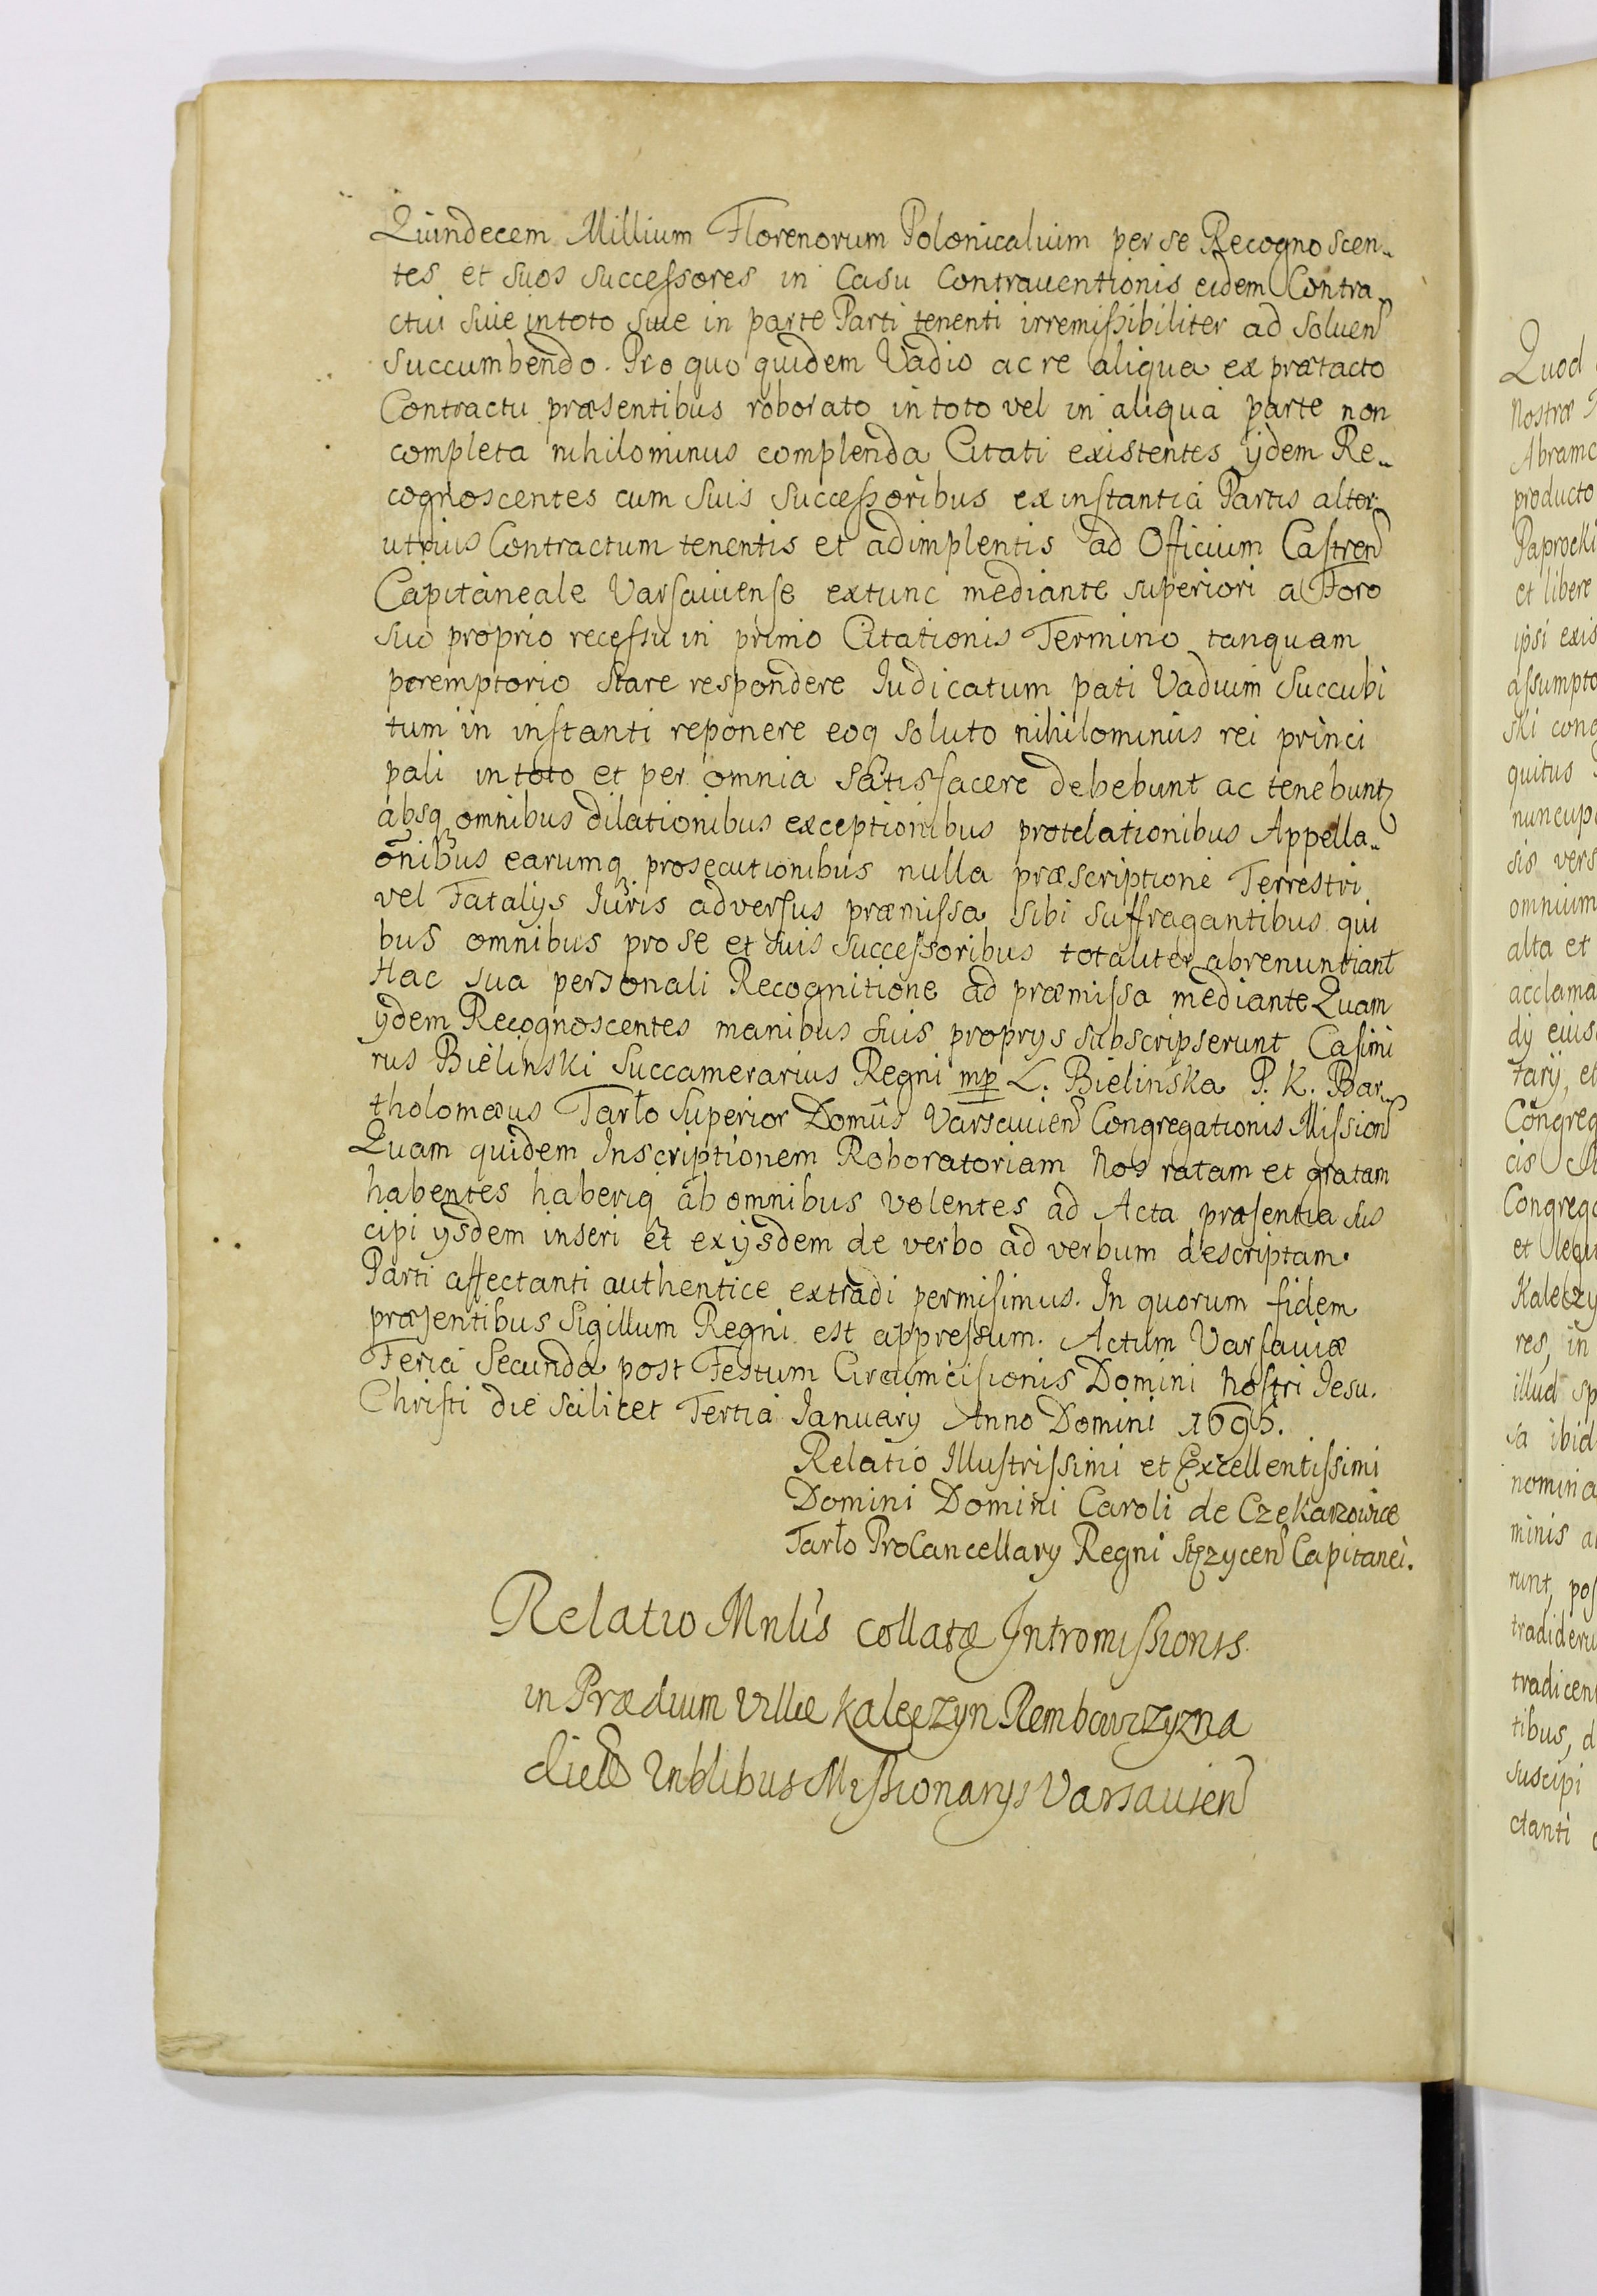 Quindecem Millium Florenorum Polonicalium per se Recognoscen„
tes et suos successores in Casu Contrauentionis eidem Contra„
ctui siue in toto siue in parte Parti tenenti irremissibiliter ad soluen
succumbendo. Pro quo quidem Vadio ac re aliqua ex prætacto
Contractu præsentibus roborato in toto vel in aliqua parte non
completa nihilominus complenda Citati existentes ijdem Re„
cognoscentes cum suis successoribus ex instantia Partis alter„
utrius Contractum tenentis et adimplentis ad Officium Castren
Capitaneale Varsauiense extunc mediante superiori a Foro
suo proprio recessu in primo Citationis Termino tanquam
peremptorio stare respondere Iudicatum pati Vadium succubi
tum in instanti reponere eoq soluto nihilominus rei princi
pali in toto et per omnia satisfacere debebunt ac tenebunt
absq omnibus dilationibus exceptionibus protelationibus Appella„
õnibus earumq prosecutionibus nulla præscriptione Terrestri
vel Fatalijs Iuris adversus præmissa sibi suffragantibus qui
bus omnibus pro se et suis successoribus totaliter abrenuntiant
Hac sua personali Recognitione ad præmissa mediante Quam
ijdem Recognoscentes manibus suis proprijs subscripserunt Casimi
rus Bielinski Succamerarius Regni mp L. Bielinska P. K. Bar„
tholomæus Tarło Superior Domûs Varsauien Congregationis Mission
Quam quidem Inscriptionem Roboratoriam Nos ratam et gratam
habentes haberiq ab omnibus volentes ad Acta præsentia sus
cipi ijsdem inseri et ex ijsdem de verbo ad verbum descriptam
Parti affectanti authentice extradi permisimus. In quorum fidem
præsentibus Sigillum Regni est appressum. Actum Varsauiæ
Feria Secunda post Festum Circumcisionis Domini Nostri Iesu
Christi die scilicet Tertia Ianuarij Anno Domini 1695.
Relatio Illustrissimi et Excellentissimi
Domini Domini Caroli de Czekarzowice
Tarło ProCancellarij Regni Stęzycen Capitanei.
Relatio Mnlis collatæ Intromissionis
in Prædium Villæ Kalęczyn Rembowszczyzna
Vnblibus Missionarijs Varsauien
Quod
Nostræ
producto
Paprocki
et libere
ipsi exis
assumpto
ski cong
quitus
nuncup
sis vers
omnium
alta et
acclama
dij eius
tarij, et
Congreg
cis
Congrega
et
Kalęczy
res, in
illud sp
sa ibid
nomina
minis a
runt, pos
tradideru
tradicen
tibus, d
suscipi
ctanti